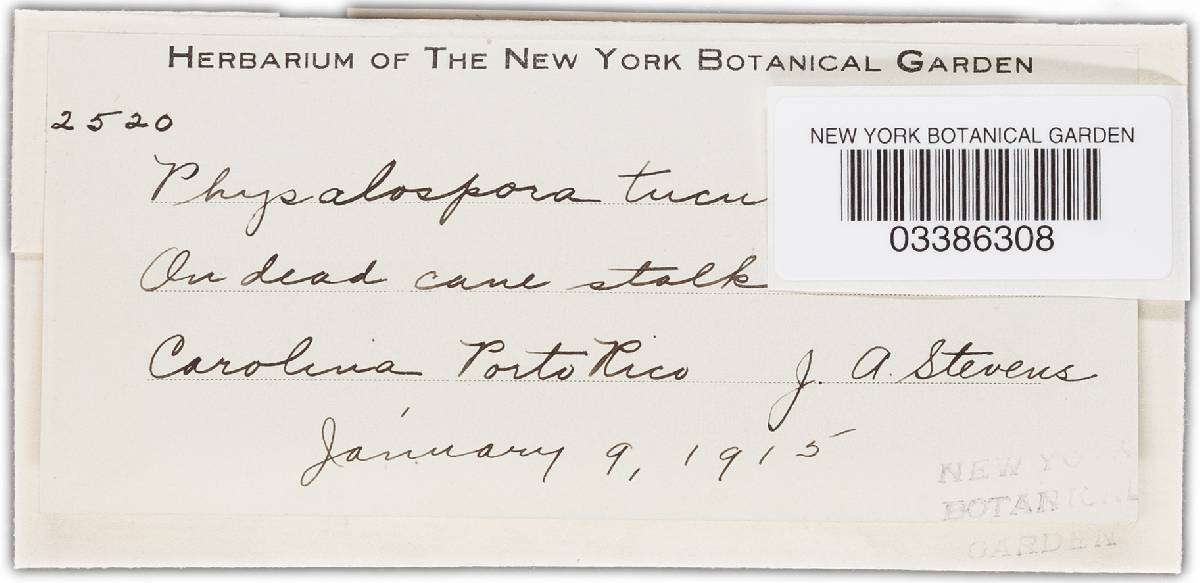 HERBARIUM OF THE NEW YORK BOTANICAL GARDEN
2520
NEW YORK BOTANICAL GARDEN
03386308
Physalospora tucu
On dead cane stalk
Carolina Porto Rico J. A. Stevens
January 9, 1915
NEW YORK
BOTANICAL
GARDEN